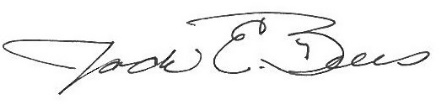 Jack E. Bees